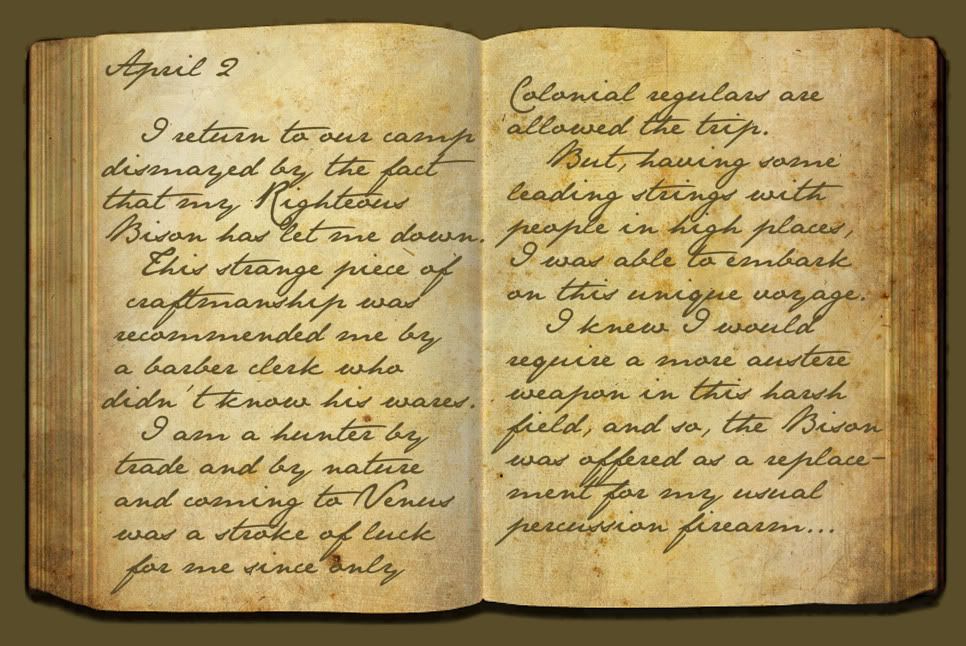 April 2
I return to our camp
dismayed by the fact
that my Righteous
Bison has let me down.
This strange piece of
craftmanship was
recommended me by
a barber clerk who
didn't know his wares.
I am a hunter by
trade and by nature
and coming to Venus
was a stroke of luck
for me since only
Colonial regulars are
allowed the trip.
But, having some
leading strings with
people in high places,
I was able to embark
on this unique voyage.
I knew I would
require a more austere
weapon in this harsh
field, and so, the Bison
was offered as a replace-
ment for my usual
percussion firearm...